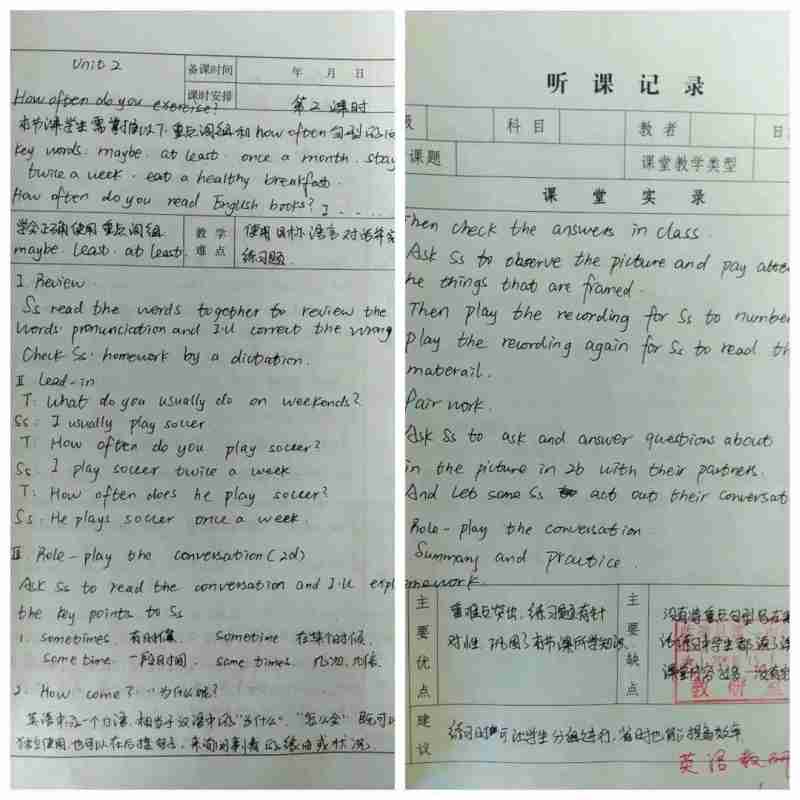 Unit 2
备课时间 年 月 日
课时安排
How often do you exercise? 第2课时
本节课学生需掌握以下重点词组和how often句型的
Key words: maybe. at least. once a month. stay
twice a week. eat a healthy breakfast.
How often do you read English books? I .....
学会正确使用重点词组
maybe. Least. at least.
教学难点
使用目标语言对话
练习题.
I. Review.
Ss read the words together to review the
words pronunciation and I'll correct the wrong
Check Ss' homework by a dictation.
II Lead-in
T: What do you usually do on weekends?
Ss: I usually play soccer
T: How often do you play soccer?
Ss: I play soccer twice a week.
T: How often does he play soccer?
Ss: He plays soccer once a week.
III Role-play the conversation (2d)
Ask Ss to read the conversation and I'll expl
the key points to Ss
1. sometimes. 有时候 sometime 在某个时候.
some time. 一段时间. some times. 几次,几倍.
2. How come? "为什么呢?"
英语中的一个口语,相当于汉语中的"为什么", "怎么会" 既可以
独立使用,也可以在后接句子,来询问事情的缘由或状况.
听课记录
级 科目 教者 日
课题 课堂教学类型
课堂实录
Then check the answers in class.
Ask Ss to observe the picture and pay atten
he things that are framed.
Then play the recording for Ss to number
play the recording again for Ss to read th
materail.
Pair work.
Ask Ss to ask and answer questions about
in the picture in 2b with their partners.
And Let some Ss to act out their conversat
Role-play the conversation
Summary and practice.
mework.
主要优点
重难点突出,练习题有针
对性,巩固了本节课所学知识.
主要缺点
没有将重点句型写在
练习中学生都
课堂 没有
教研
建议
练习时可让学生分组进行,省时也能提高效率.
英语教研